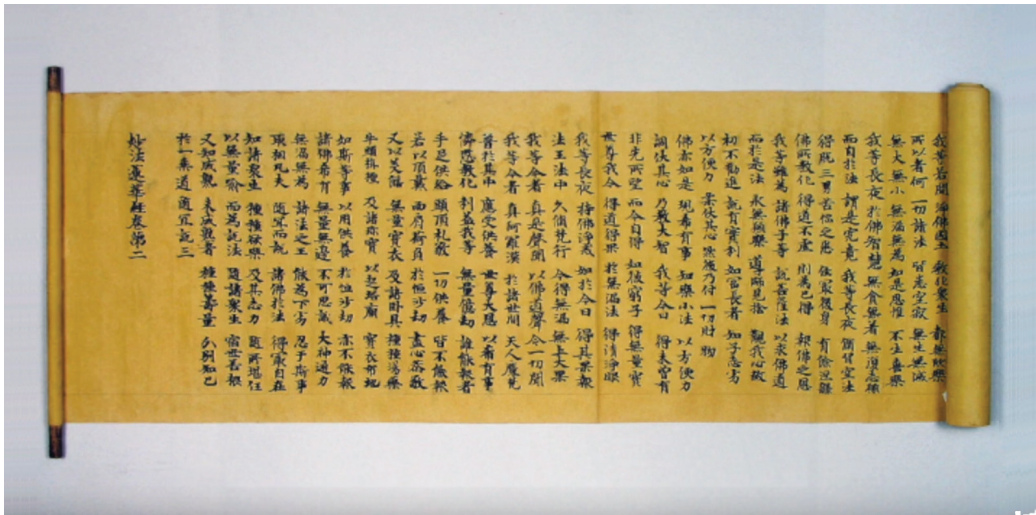 我等若聞 淨佛國土 教化衆生 都無欣樂
所以者何 一切諸法 皆悉空寂 無生無滅
無大無小 無漏無為 如是思惟 不生喜樂
我等長夜 於佛智慧 無貪無著 無復志願
而自於法 謂是究竟 我等長夜 脩習空法
得脫三界 苦惱之患 住最後身 有餘涅槃
佛所教化 得道不虛 則為已得 報佛之恩
我等雖為 諸佛子等 說菩薩法 以求佛道
而於是法 永無願樂 導師見捨 觀我心故
初不勸進 說有實利 如富長者 知子志劣
以方便力 柔伏其心 然後乃付 一切財物
佛亦如是 現希有事 知樂小法 以方便力
調伏其心 乃教大智 我等今日 得未曾有
非先所望 而今自得 如彼窮子 得無量寶
世尊我今 得道得果 於無漏法 得清淨眼
我等長夜 持佛淨戒 始於今日 得其果報
法王法中 久脩梵行 今得無漏 無上大果
我等今者 真是聲聞 以佛道聲 令一切聞
我等今者 真阿羅漢 於諸世間 天人魔梵
普於其中 應受供養 世尊大恩 以希有事
憐愍教化 利益我等 無量億劫 誰能報者
手足供給 頭頂礼敬 一切供養 皆不能報
若以頂戴 兩肩荷負 於恒沙劫 盡心恭敬
又以美饍 無量寶衣 及諸臥具 種種湯藥
牛頭栴檀 及諸珍寶 以起塔廟 寶衣布地
如斯等事 以用供養 於恒沙劫 亦不能報
諸佛希有 無量無邊 不可思議 大神通力
無漏無為 諸法之王 能為下劣 忍于斯事
取相凡夫 隨宜而說 諸佛於法 得最自在
知諸衆生 種種欲樂 及其志力 隨所堪任
以無量喻 而為說法 隨諸衆生 宿世善根
又知成熟 未成熟者 種種籌量 分別知已
於一乘道 隨宜說三
妙法蓮華經卷第二